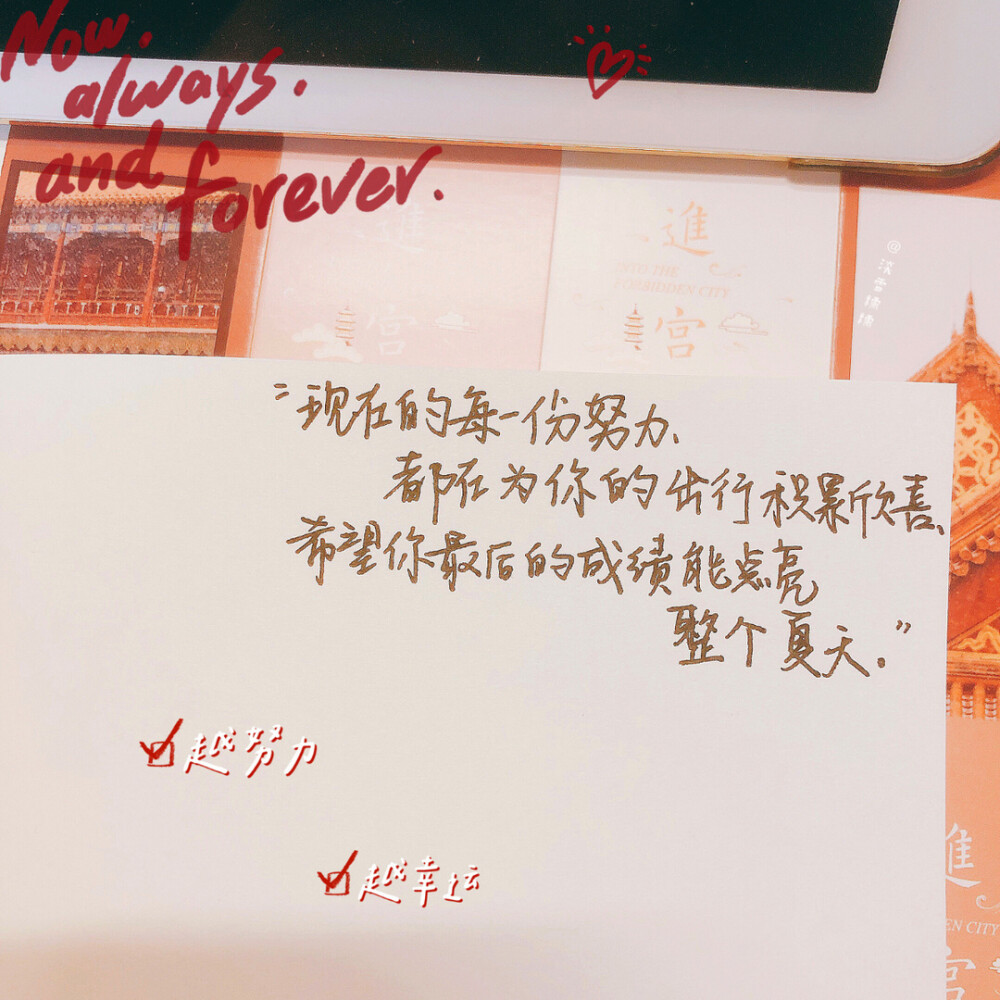 Now.
always.
and forever.
進
INTO THE
FORBIDDEN CITY
宫
進
宫
@
“现在的每一份努力、
都在为你的出行积累欣喜、
希望你最后的成绩能点亮
整个夏天.”
越努力
越幸运
進
EN CITY
宫